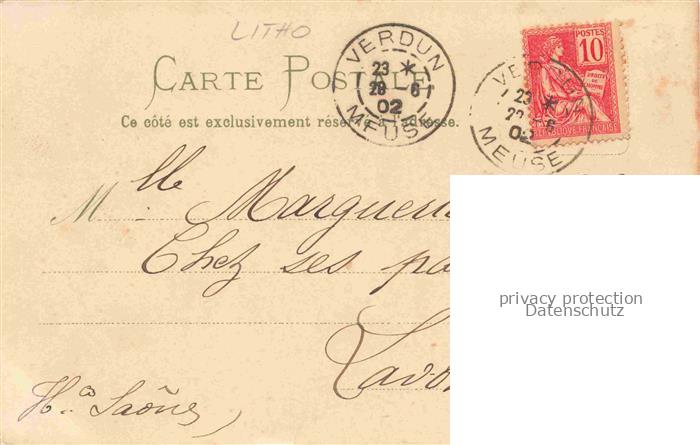 LITHO
CARTE POSTALE
Ce côté est exclusivement réservé à l'adresse.
VERDUN
23 *
28 - 6
02
MEUSE
POSTES
10
DROITS
DE
L'HOMME
REPUBLIQUE FRANÇAISE
23 *
02
MEUSE
Mlle
Chez ses
Hte Saône
privacy protection
Datenschutz